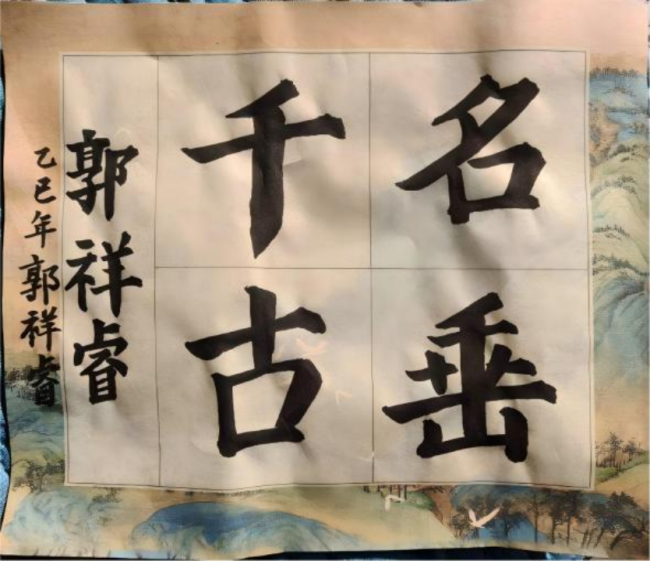 名垂
千古
郭祥睿
乙巳年郭祥睿